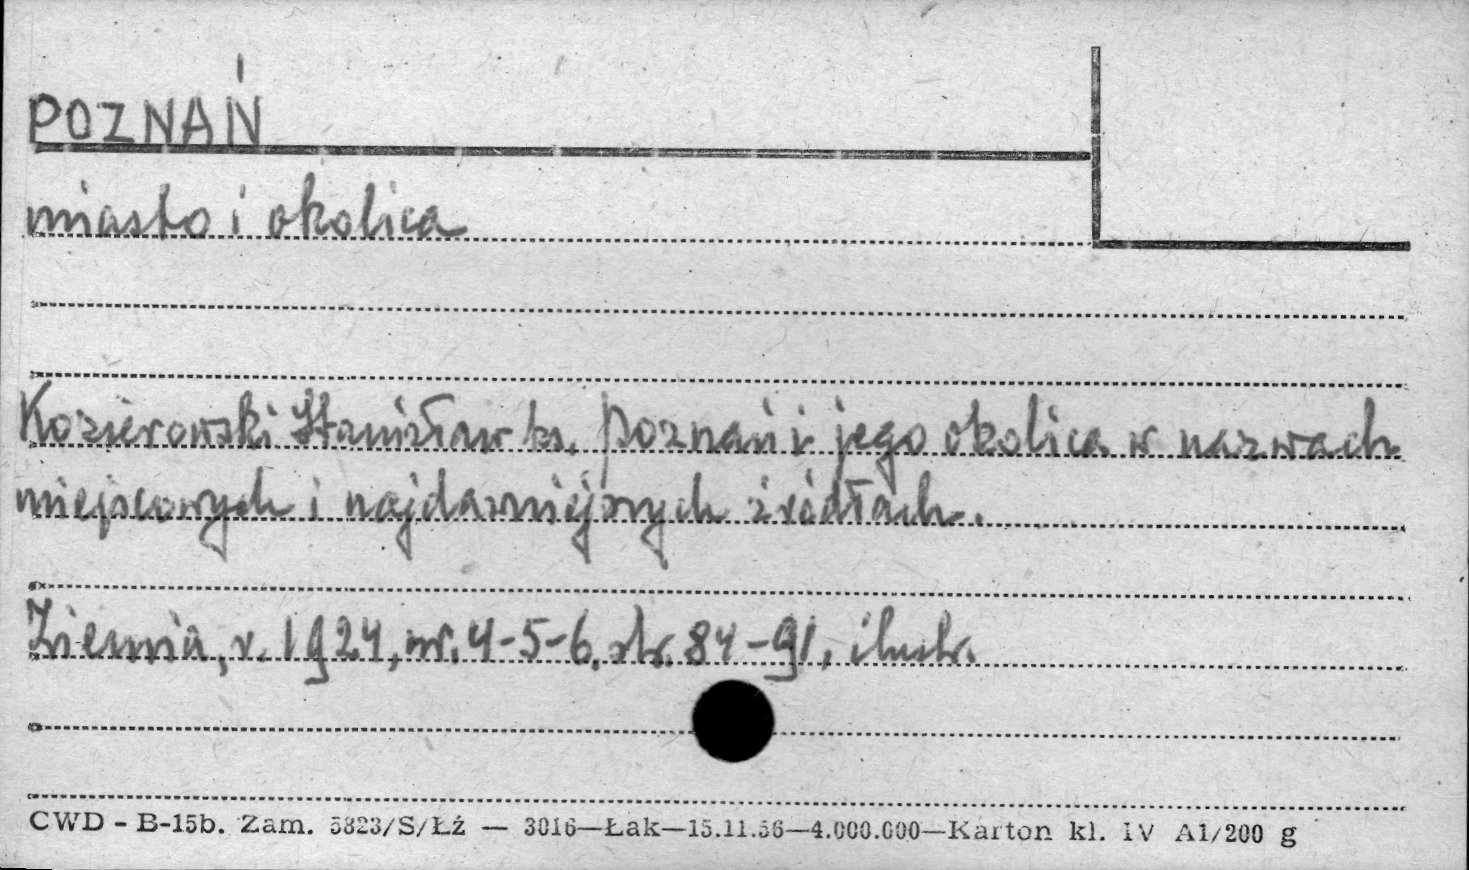 POZNAŃ
miasto i okolica
Kozierowski Stanisław ks. Poznań i jego okolica w nazwach
miejscowych i najdawniejszych źródłach.
Ziemia, r. 1924, nr. 4-5-6, str. 84-91, ilustr.
CWD - B-15b. Zam. 5823/S/Łź — 3016—Łak—15.11.56—4.000.000—Karton kl. IV A1/200 g